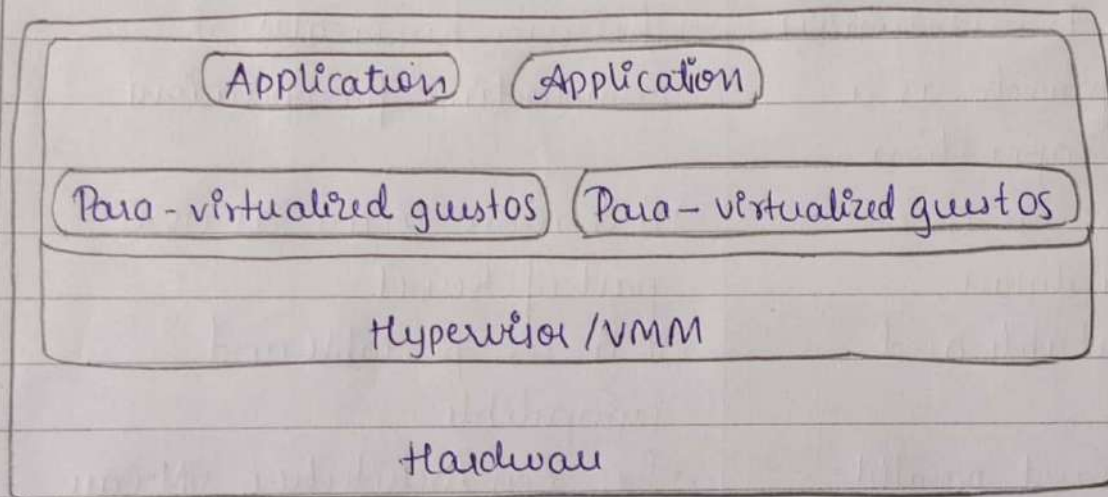 Application Application
Para-virtualized guest os Para-virtualized guest os
Hypervisor/VMM
Hardware